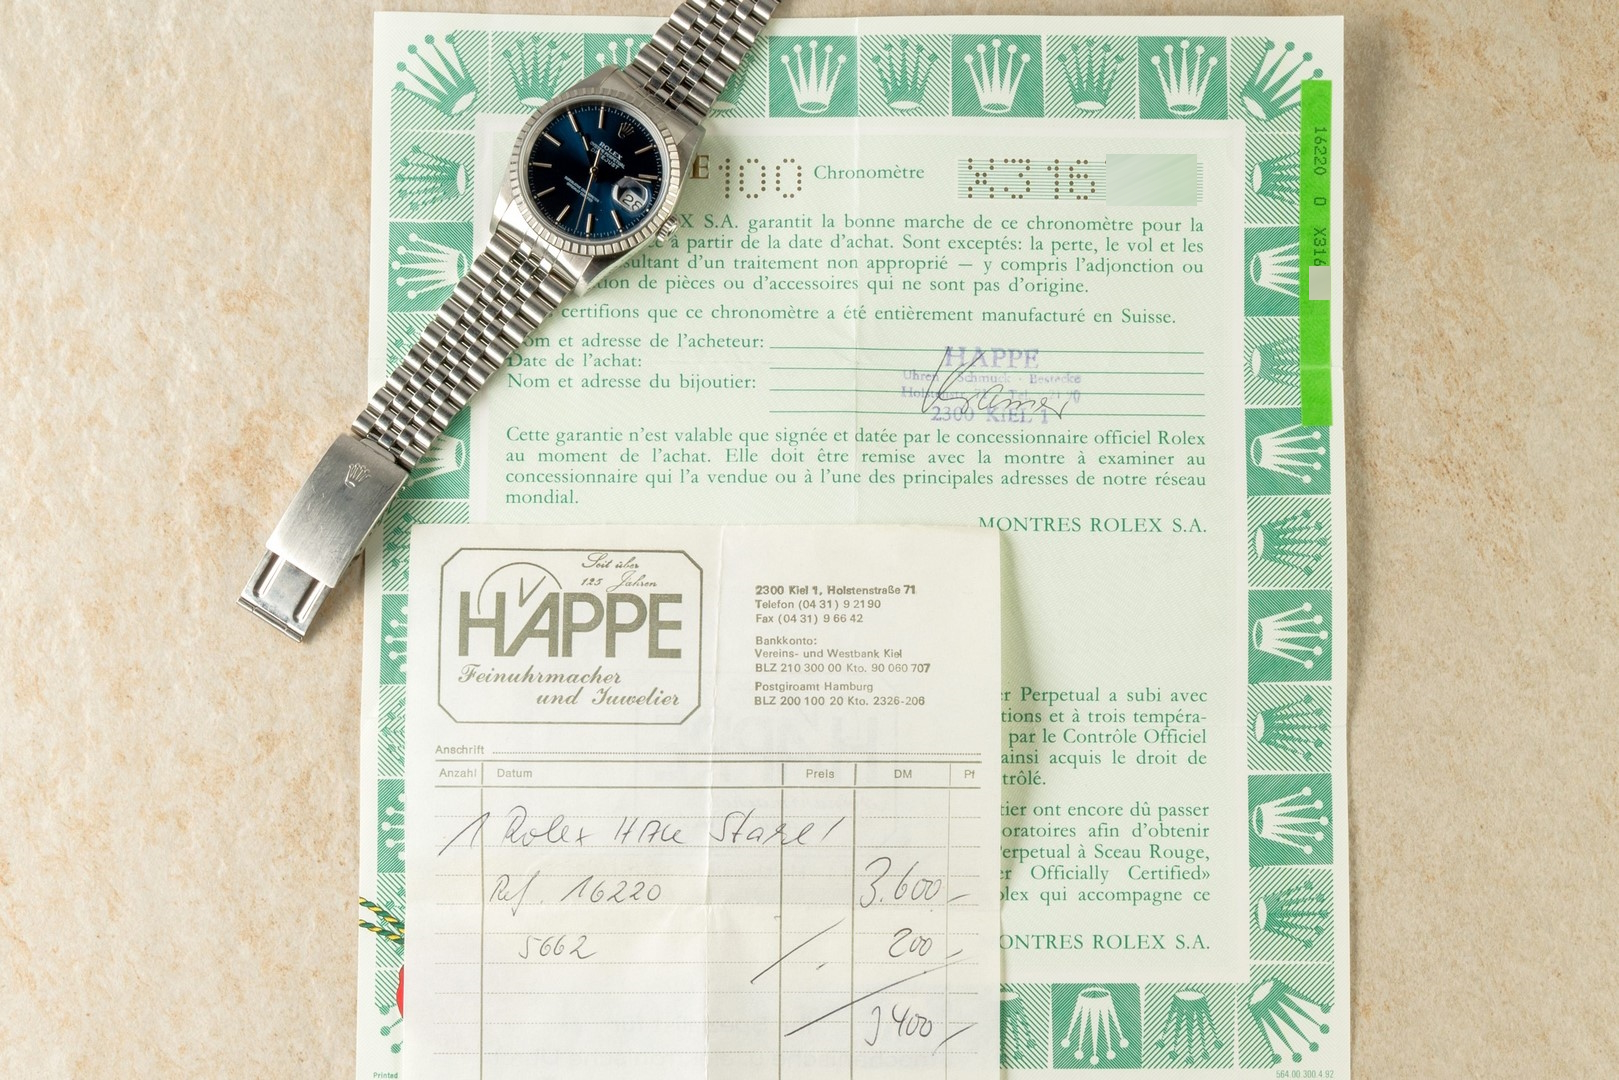 ROLEX
DATEJUST
26
E 100 Chronomètre X316
X S.A. garantit la bonne marche de ce chronomètre pour la
à partir de la date d'achat. Sont exceptés: la perte, le vol et les
sultant d'un traitement non approprié — y compris l'adjonction ou
tion de pièces ou d'accessoires qui ne sont pas d'origine.
certifions que ce chronomètre a été entièrement manufacturé en Suisse.
om et adresse de l'acheteur:
Date de l'achat:
Nom et adresse du bijoutier:
HAPPE
Uhren Schmuck · Bestecke
2300 KIEL 1
Cette garantie n'est valable que signée et datée par le concessionnaire officiel Rolex
au moment de l'achat. Elle doit être remise avec la montre à examiner au
concessionnaire qui l'a vendue ou à l'une des principales adresses de notre réseau
mondial.
MONTRES ROLEX S.A.
16220 0 X316
Seit über
125 Jahren
HAPPE
Feinuhrmacher
und Juwelier
2300 Kiel 1, Holstenstraße 71
Telefon (04 31) 9 21 90
Fax (04 31) 9 66 42
Bankkonto:
Vereins- und Westbank Kiel
BLZ 210 300 00 Kto. 90 060 707
Postgiroamt Hamburg
BLZ 200 100 20 Kto. 2326-206
Anschrift
Anzahl Datum Preis DM Pf
1 Rolex HAU Stahl
Ref. 16220 3.600,-
5662 200,-
3400,-
r Perpetual a subi avec
tions et à trois tempéra-
par le Contrôle Officiel
ainsi acquis le droit de
trôlé.
tier ont encore dû passer
oratoires afin d'obtenir
erpetual à Sceau Rouge,
er Officially Certified»
olex qui accompagne ce
ONTRES ROLEX S.A.
Printed
564.00.300.4.92